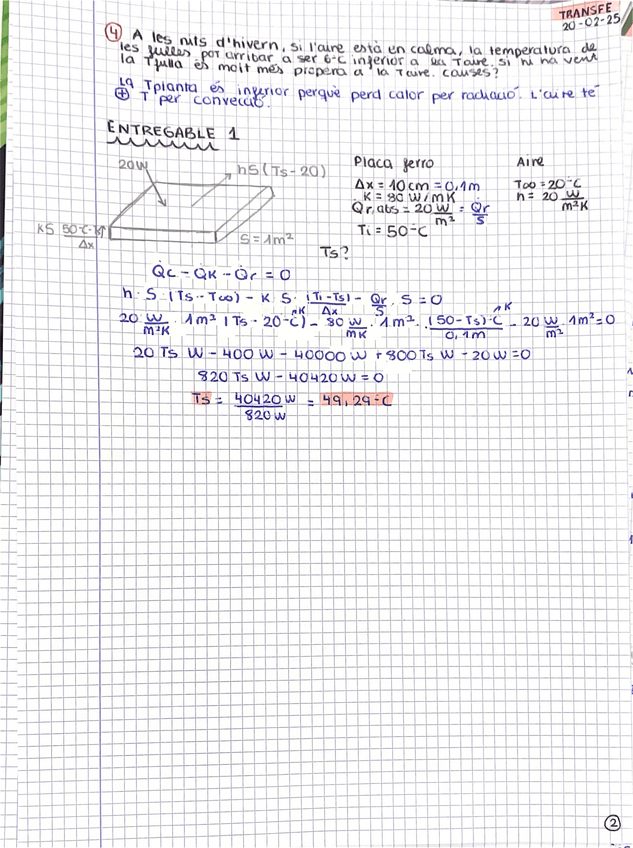 TRANSFE
20-02-25
4 A les nits d'hivern, si l'aire està en calma, la temperatura de
les fulles pot arribar a ser 6ºC inferior a la Taire. Si hi ha vent
la Tfulla és molt més propera a la Taire. Causes?
La Tplanta és inferior perquè perd calor per radiació. L'aire té
⊕ T per convecció.
ENTREGABLE 1
20W
hS (Ts - 20)
KS
Δx
S = 1m²
Placa ferro
Δx = 10cm = 0,1m
K = 80 W/mK
Qr,abs = 20 W/m² = Q̇r/S
Ti = 50ºC
Aire
T∞ = 20ºC
h = 20 W/m²K
Ts?
Q̇c - Q̇k - Q̇r = 0
h · S · (Ts - T∞) - K · S · (Ti - Ts)/Δx - Qr/S · S = 0
20 W/m²K · 1m² (Ts - 20ºC) - 80 W/mK · 1m² · (50 - Ts)ºC/0,1m - 20 W/m² · 1m² = 0
20 Ts W - 400 W - 40000 W + 800 Ts W - 20W = 0
820 Ts W - 40420 W = 0
Ts = 40420 W/820 W = 49,29ºC
2